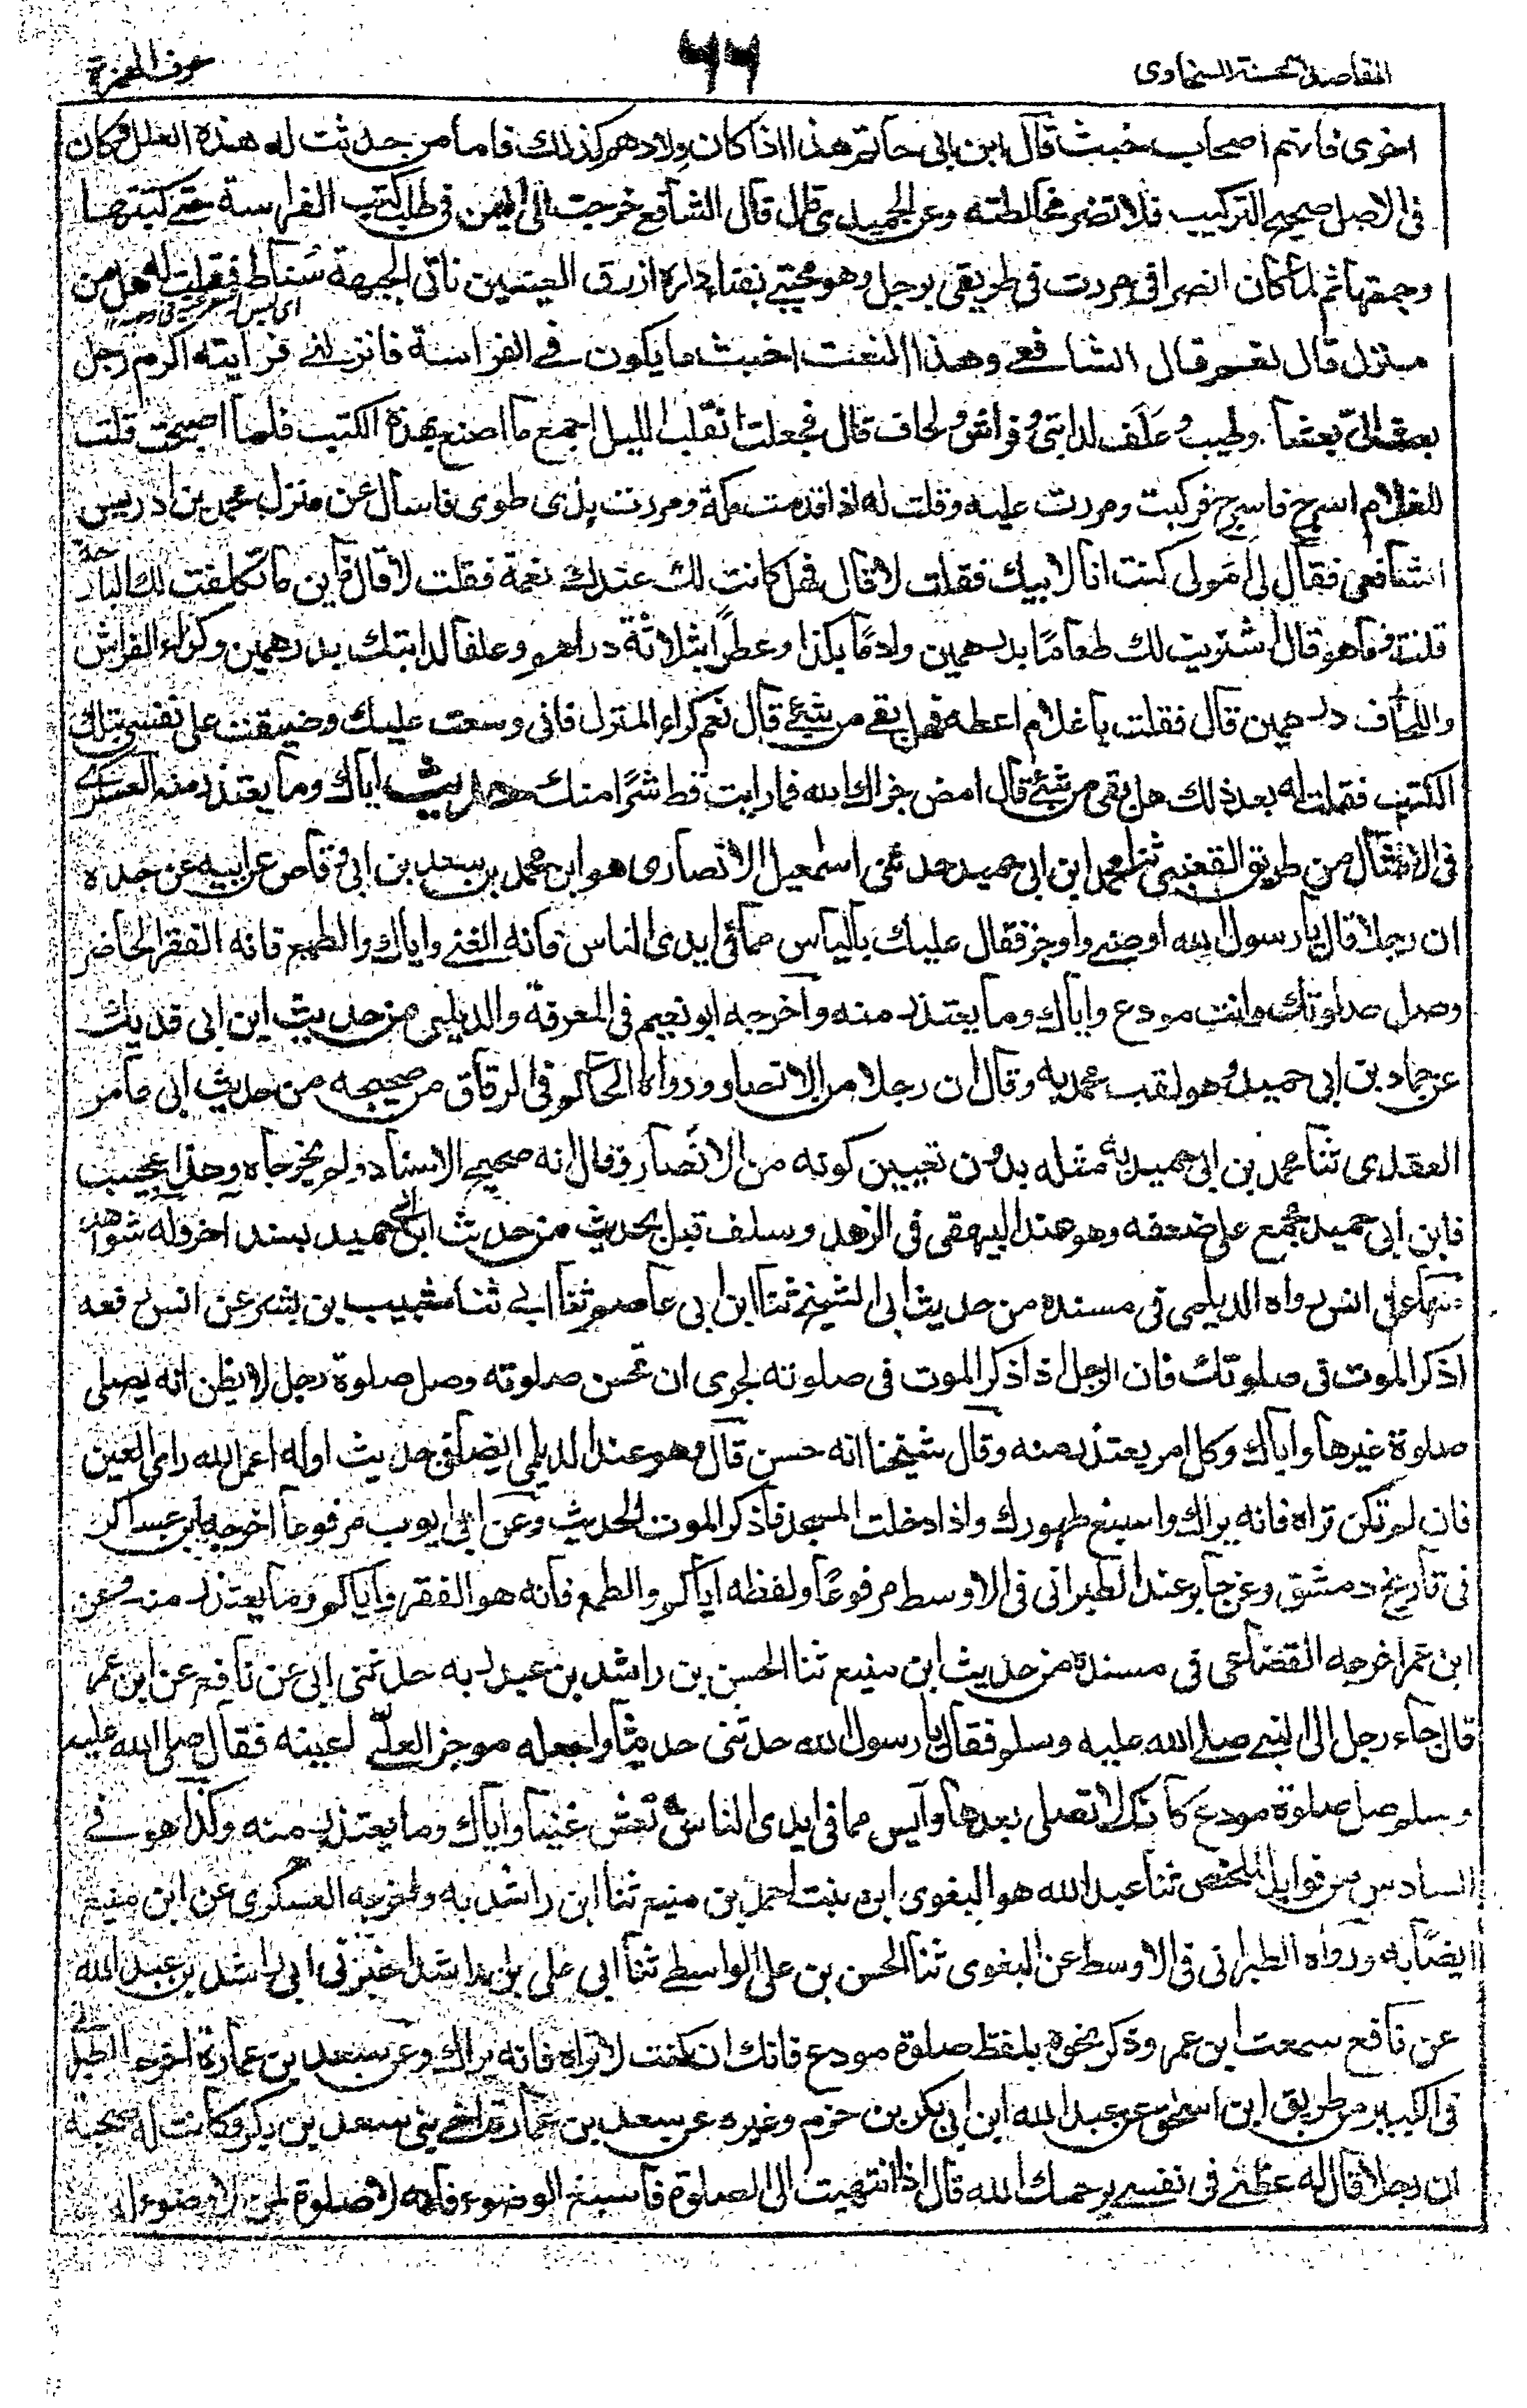 المقاصد الحسنة للسخاوى
۶۶
حرف الهمزة
اخرى فانهم اصحاب خبث قال ابن ابى حاتم هذا اذا كان ولادهم كذلك فاما من حدثت له هذه العلل وكان
فى الاصل صحيح التركيب فلا تضر مخالطته وعن الحميدى قال قال الشافعى خرجت الى اليمن فى طلب كتب الفراسة حتى كتبتها
وجمعتها ثم لما كان انصرافى مررت فى طريقى برجل وهو محتبى بفناء داره ازرق العينين ناتى الجبهة سناط فقلت له هل من
منزل قال نعم قال الشافعى وهذا النعت اخبث ما يكون فى الفراسة فانزلنى فرايته اكرم رجل
بعث الىّ بعشاء وطيب وعلف لدابتى وفراش ولحاف قال فجعلت اتقلب الليل اجمع ما اصنع بهذه الكتب فلما اصبحت قلت
للغلام اسرج فاسرج فركبت ومررت عليه وقلت له اذا قدمت مكة ومررت بذى طوى فاسأل عن منزل محمد بن ادريس
الشافعى فقال لى امولى كنت انا لابيك فقلت لا قال فهل كانت لك عندك نعمة فقلت لا قال فاين ما تكلفت لك البارحة
قلت وما هو قال اشتريت لك طعاما بدرهمين واداما بكذا وعطرا بثلاثة دراهم وعلفا لدابتك بدرهمين وكراء الفراش
واللحاف درهمين قال فقلت يا غلام اعطه فهل بقى من شئ قال نعم كراء المنزل فانى وسعت عليك وضيقت على نفسى بتلك
الكتب فقلت له بعد ذلك هل بقى من شئ قال امض جزاك الله فما رايت قط شرا منك حديث اياك وما يعتذر منه العسكرى
فى الامثال من طريق القعنبى ثنا محمد ابن ابى حميد حدثنى اسمعيل الانصارى هو ابن محمد بن سعد بن ابى وقاص عن ابيه عن جده
ان رجلا قال يا رسول الله اوصنى واوجز فقال عليك بالياس مما فى ايدى الناس فانه الغنى واياك والطمع فانه الفقر الحاضر
وصل صلوتك وانت مودع واياك وما يعتذر منه واخرجه ابو نعيم فى المعرفة والديلمى من حديث ابن ابى فديك
عن حماد بن ابى حميد وهو لقب محمد به وقال ان رجلا من الانصار ورواه الحاكم فى الرقاق من صحيحه من حديث ابى عامر
العقدى ثنا محمد بن ابى حميد به مثله بدون تعيين كونه من الانصار وقال انه صحيح الاسناد ولم يخرجاه وهذا عجيب
فابن ابى حميد مجمع على ضعفه وهو عند البيهقى فى الزهد وسلف قبل بحديث من حديث ابن ابى حميد بسند اخر وله شواهد
منها عن انس رواه الديلمى فى مسنده من حديث ابى الشيخ ثنا ابن ابى عاصم ثنا ابى ثنا شبيب بن بشر عن انس رفعه
اذكر الموت فى صلوتك فان الرجل اذا ذكر الموت فى صلوته لحرى ان تحسن صلوته وصل صلوة رجل لا يظن انه يصلى
صلوة غيرها واياك وكل امر يعتذر منه وقال شيخنا انه حسن قال وهو عند الديلمى ايضا فى حديث اوله اعمل لله راى العين
فان لم تكن تراه فانه يراك واسبغ طهورك واذا دخلت المسجد فاذكر الموت الحديث وعن ابى ايوب مرفوعا اخرجه ابن عساكر
فى تاريخ دمشق وعن جابر عند الطبرانى فى الاوسط مرفوعا ولفظه اياكم والطمع فانه هو الفقر واياكم وما يعتذر منه وعن
ابن عمر اخرجه القضاعى فى مسنده من حديث ابن منيع ثنا الحسن بن راشد بن عبد ربه حدثنى ابى عن نافع عن ابن عمر
قال جاء رجل الى النبى صلى الله عليه وسلم فقال يا رسول الله حدثنى حديثا واجعله موجزا لعلّى اعيه فقال صلى الله عليه
وسلم صل صلوة مودع كانك لا تصلى بعدها وآيس مما فى ايدى الناس تعش غنيا واياك وما يعتذر منه وكذا هو فى
السادس من فوايد المخلص ثنا عبد الله هو البغوى ابن بنت احمد بن منيع ثنا ابن راشد به واخرجه العسكرى عن ابن منيع
ايضا به ورواه الطبرانى فى الاوسط عن البغوى ثنا الحسن بن على الواسطى ثنا ابى على بن راشد اخبرنى ابى راشد بن عبد الله
عن نافع سمعت ابن عمر وذكر نحوه بلفظ صلوة مودع فانك ان كنت لا تراه فانه يراك وعن سعد بن عمارة اخرجه الطبرانى
فى الكبير من طريق ابن اسحق عن عبد الله ابن ابى بكر بن حزم وغيره عن سعد بن عمارة اخى بنى سعد بن بكر وكانت له صحبة
ان رجلا قال له عظنى فى نفسى يرحمك الله قال اذا انتهيت الى الصلوة فاسبغ الوضوء فانه لا صلوة لمن لا وضوء له